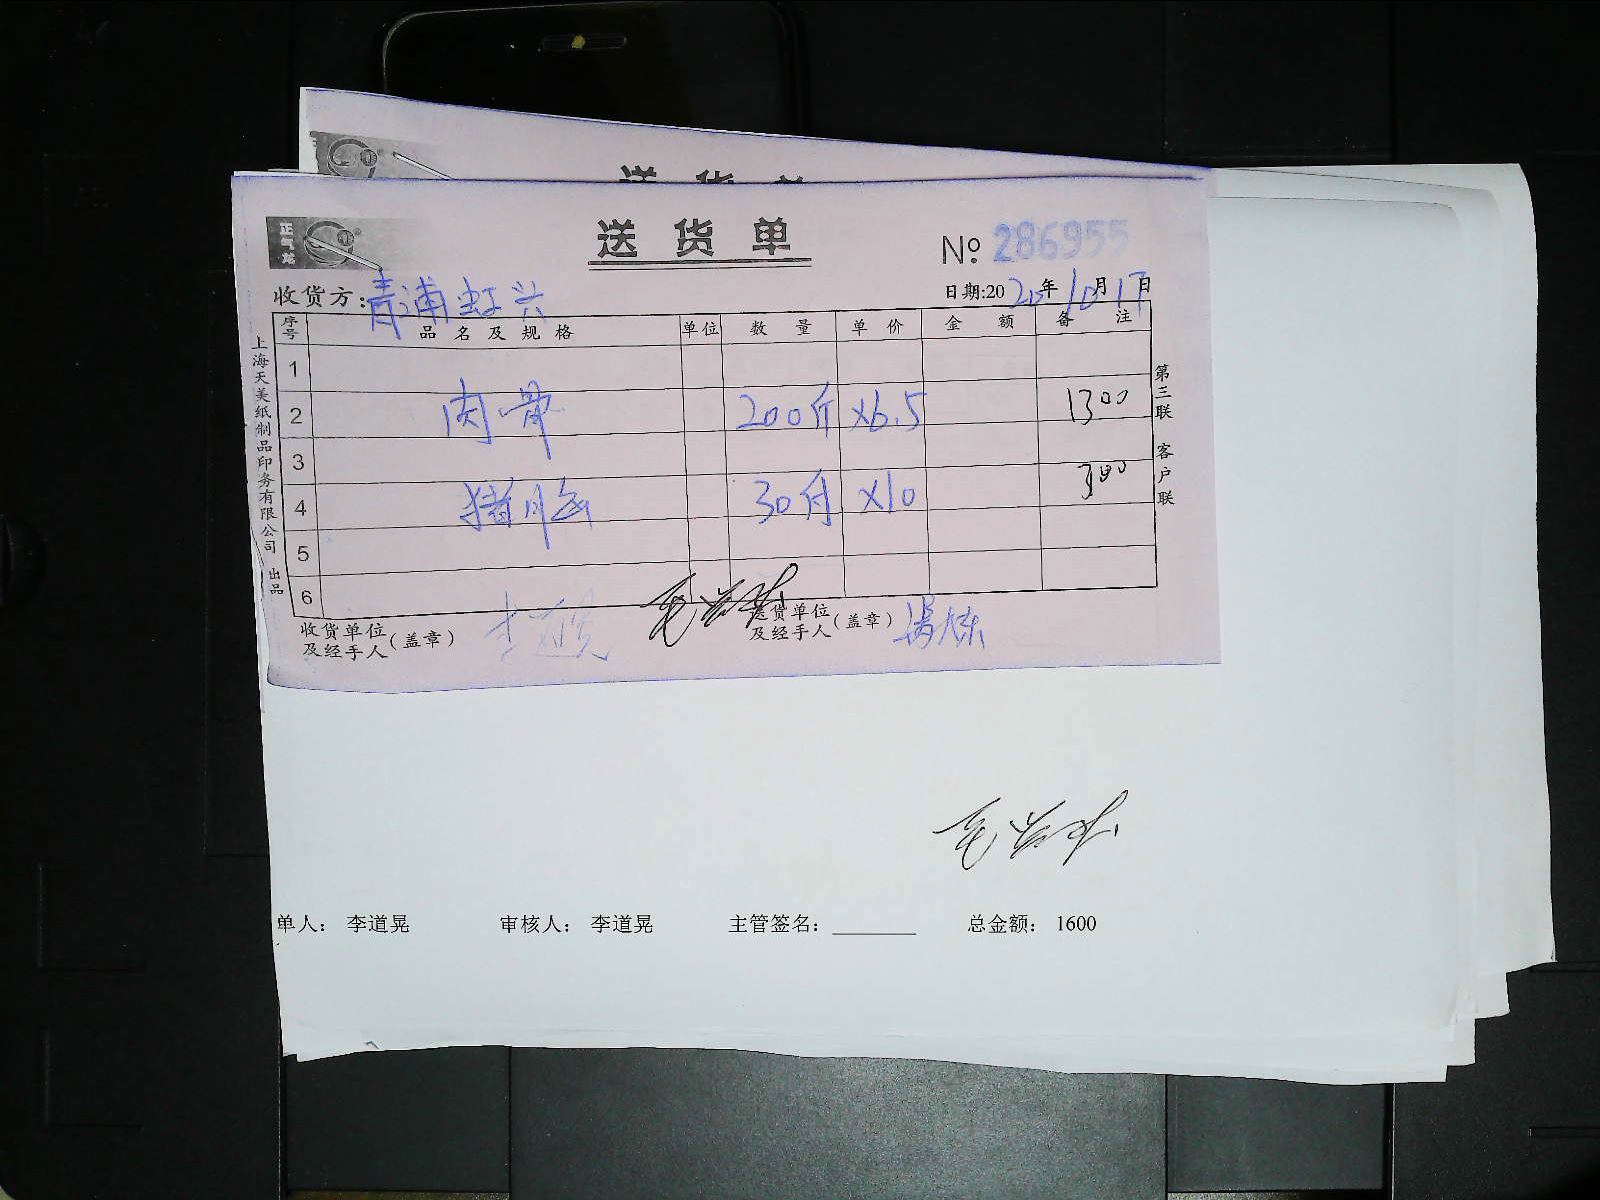 送 货 单
正气龙
送 货 单
№ 286955
收货方: 青浦虹兴
日期:2020年10月17日
序号 品名及规格 单位 数量 单价 金额 备注
1
2 肉骨 200斤 x6.5 1300
3
4 猪 30斤 x10 300
5
6
收货单位及经手人(盖章)
送货单位及经手人(盖章)
上海天美纸制品印务有限公司 出品
第三联 客户联
单人： 李道晃 审核人： 李道晃 主管签名：________ 总金额： 1600